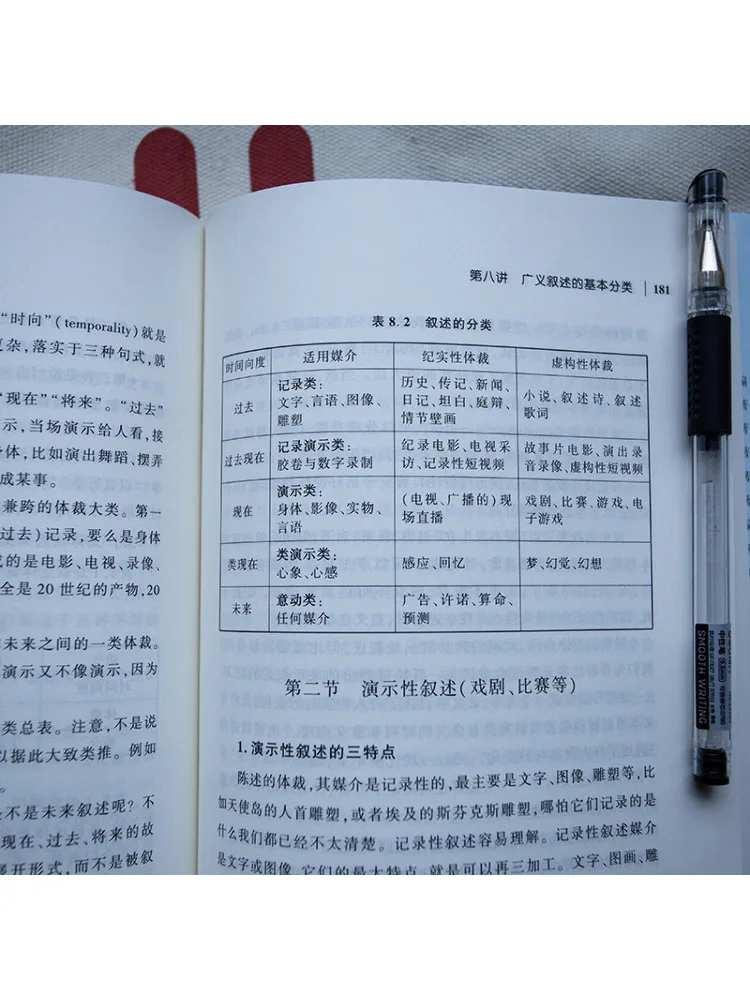 "时向"(temporality)就是
杂,落实于三种句式,就
"现在""将来"。"过去
示,当场演示给人看,接
体,比如演出舞蹈、摆弄
成某事。
兼跨的体裁大类。第一
过去)记录,要么是身体
的是电影、电视、录像、
全是20世纪的产物,20
未来之间的一类体裁。
演示又不像演示,因为
类总表。注意,不是说
以据此大致类推。例如
是不是未来叙述呢?不
现在、过去、将来的故
展开形式,而不是被叙
第八讲 广义叙述的基本分类 181
表8.2 叙述的分类
时间向度 适用媒介 纪实性体裁 虚构性体裁
过去
记录类:
文字、言语、图像、
雕塑
历史、传记、新闻、
日记、坦白、庭辩、
情节壁画
小说、叙述诗、叙述
歌词
过去现在
记录演示类:
胶卷与数字录制
纪录电影、电视采
访、记录性短视频
故事片电影、演出录
音录像、虚构性短视频
现在
演示类:
身体、影像、实物、
言语
(电视、广播的)现
场直播
戏剧、比赛、游戏、电
子游戏
类现在
类演示类:
心象、心感
感应、回忆
梦、幻觉、幻想
未来
意动类:
任何媒介
广告、许诺、算命、
预测
第二节 演示性叙述(戏剧、比赛等)
1.演示性叙述的三特点
陈述的体裁,其媒介是记录性的,最主要是文字、图像、雕塑等,比
如天使岛的人首雕塑,或者埃及的斯芬克斯雕塑,哪怕它们记录的是
什么我们都已经不太清楚。记录性叙述容易理解。记录性叙述媒介
是文字或图像,它们的最大特点,就是可以再三加工。文字、图画、雕
中性笔
SMOOTH WRITING